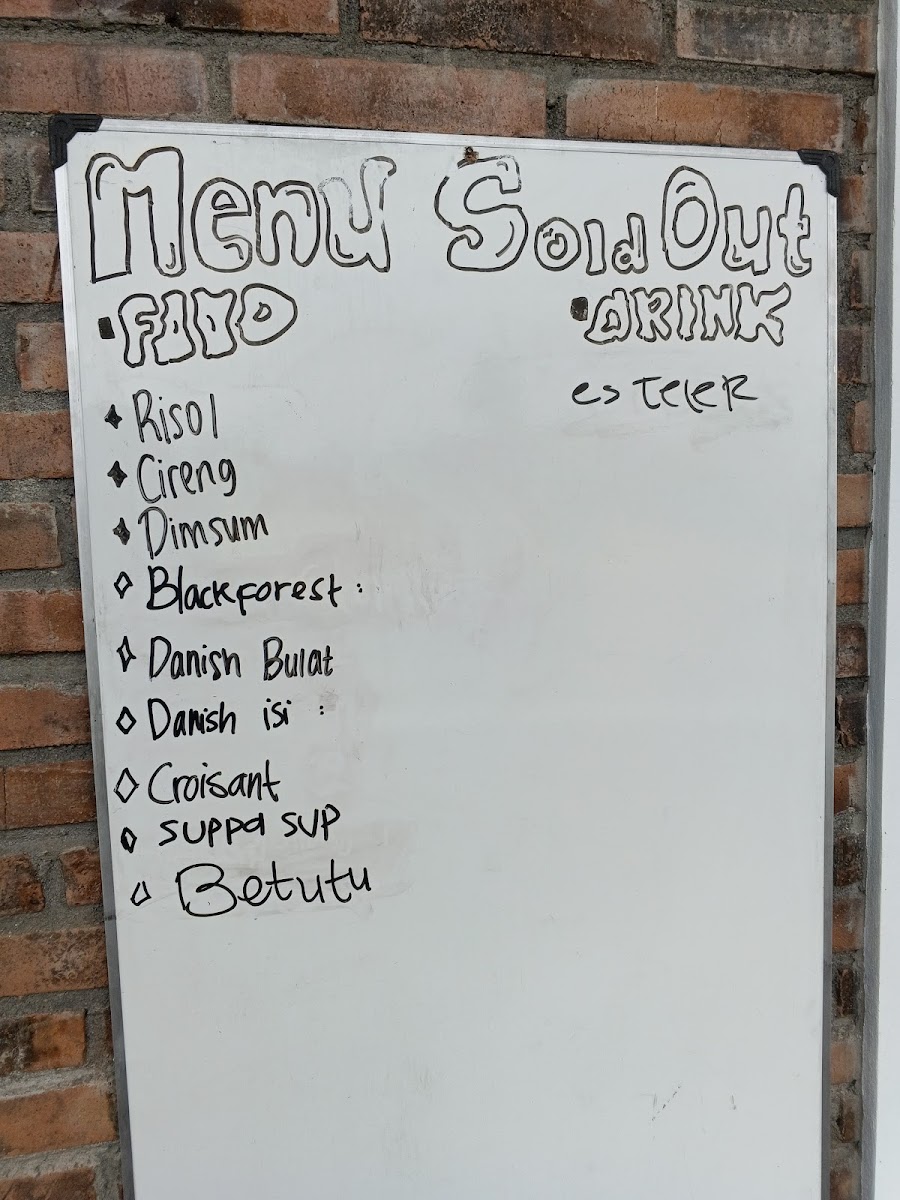 Menu Sold Out
FOOD
DRINK
Risol
es TeleR
Cireng
Dimsum
Blackforest :
Danish Bulat
Danish isi :
Croisant
suppa sup
Betutu